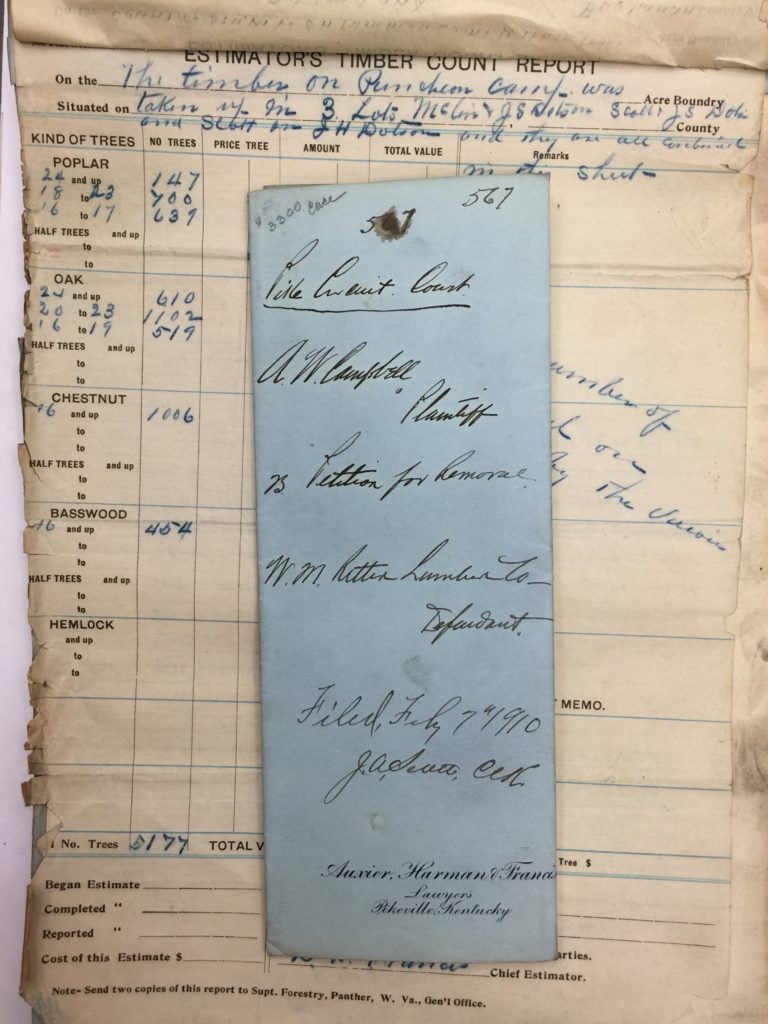 ESTIMATOR'S TIMBER COUNT REPORT
On the The timber on Puncheon camp was Acre Boundry
Situated on taken up in 3 Lots McCoy & J S Dotson Scott & J S Dotson County
and Scott on J H Dotson and they are all combined
KIND OF TREES NO TREES PRICE TREE AMOUNT TOTAL VALUE Remarks
in this sheet
POPLAR
24 and up 147
18 to 23 700
16 to 17 639
HALF TREES and up
to
to
OAK
24 and up 610
20 to 23 1102
16 to 19 519
HALF TREES and up
to
to
CHESTNUT
16 and up 1006
to
to
HALF TREES and up
to
to
BASSWOOD
16 and up 454
to
to
HALF TREES and up
to
to
HEMLOCK
and up
to
to
number of
on
by the
MEMO.
No. Trees 5177 TOTAL V
Tree $
Began Estimate
Completed "
Reported "
Cost of this Estimate $
arties.
Francis Chief Estimator.
Note- Send two copies of this report to Supt. Forestry, Panther, W. Va., Gen'l Office.
$3300 Case
567
567
Pike Circuit Court
A. W. Campbell
Plaintiff
vs Petition for Removal
W. M. Ritter Lumber Co
Defendant.
Filed, Feby 7" 1910
J. A. Scott, Clk.
Auxier, Harman & Francis
Lawyers
Pikeville, Kentucky